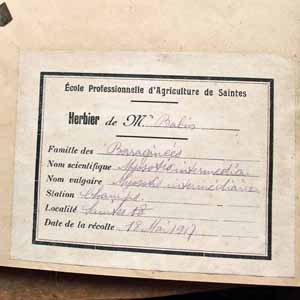 École Professionnelle d'Agriculture de Saintes
Herbier de Mr
Famille des Boraginées
Nom scientifique Myosotis intermedia
Nom vulgaire Myosotis intermédiaire
Station Champs
Localité Saintes
Date de la récolte 18 Mai 1917